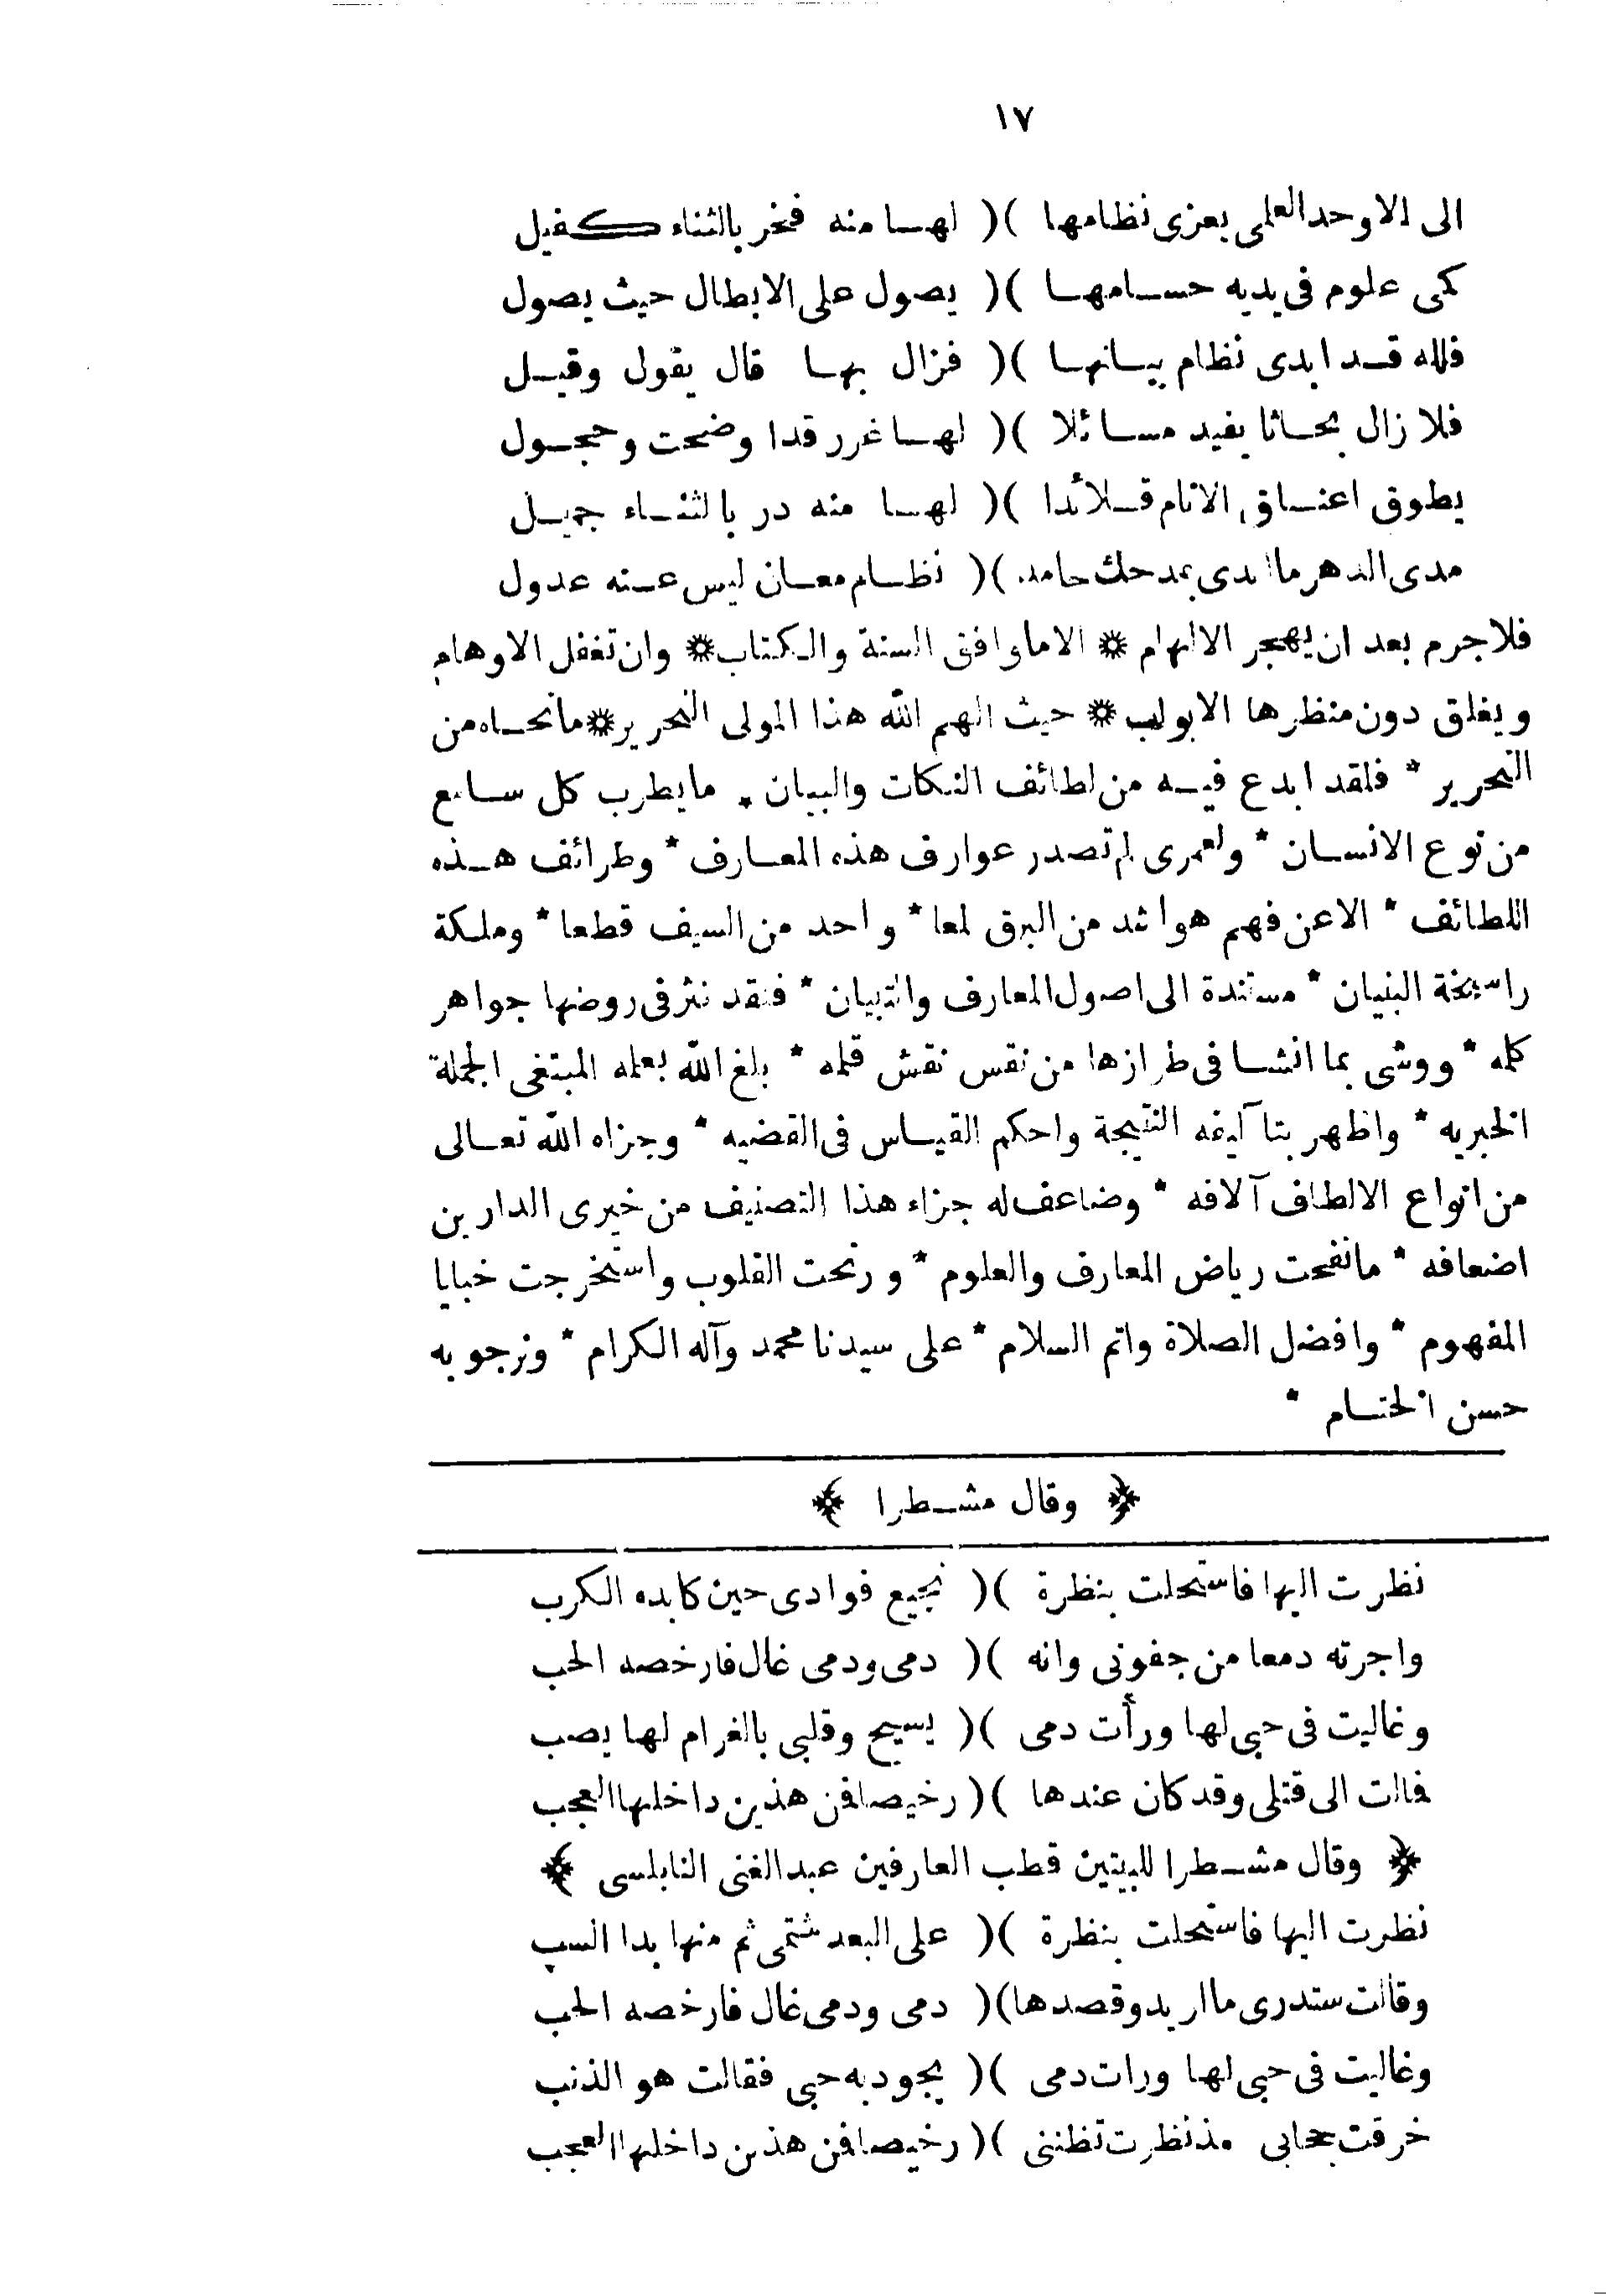 ١٧
الى الاوحد العلمى يعزى نظامها )( لهـا منه فخر بالثناء كفيل
كمى علوم فى يديه حسـامهـا )( يصول على الابطال حيث يصول
فلله قـد ابدى نظام بيـانهـا )( فزال بهـا قال يقول وقيـل
فلا زال بحـاثا يفيد مسـائلا )( لهـا غرر قدا وضحت وحجـول
يطوق اعنـاق الانام قـلائدا )( لهـا منه در بالثنـاء جميـل
مدى الدهر ما ابدى بمدحك حامد )( نظـام معـان ليس عـنه عدول
فلا جرم بعد ان يهجر الالهام * الا ما وافق السنة والكتاب * وان تغفل الاوهام
ويغلق دون منظرها الابواب * حيث الهم الله هذا المولى النحرير * ما نحـاه من
التحرير * فلقد ابدع فيـه من لطائف النكات والبيان * ما يطرب كل سـامع
من نوع الانسـان * ولعمرى لم تصدر عوارف هذه المعـارف * وطرائف هـذه
اللطائف * الا عن فهم هو اشد من البرق لمعا * واحد من السيف قطعا * وملكة
راسخة البنيان * مستندة الى اصول المعارف والتبيان * فلقد نثر فى روضها جواهر
كلمه * ووشى بما انشـا فى طرازها من نقس نقش قلمه * بلغ الله بعلمه المبتغى الجملة
الخبريه * واظهر بتآليفه النتيجة واحكم القيـاس فى القضيه * وجزاه الله تعـالى
من انواع الالطاف آلافه * وضاعف له جزاء هذا التصنيف من خيرى الدارين
اضعافه * ما نفحت رياض المعارف والعلوم * ورنحت القلوب واستخرجت خبايا
المفهوم * وافضل الصلاة واتم السلام * على سيدنا محمد وآله الكرام * ونرجو به
حسن الختـام *
﴿ وقال مشـطرا ﴾
نظرت اليها فاستحلت بنظرة )( نجيع فوادى حين كابده الكرب
واجرته دمعا من جفونى وانه )( دمى ودمى غال فارخصه الحب
وغاليت فى حبى لها ورأت دمى )( يسيح وقلبى بالغرام لها يصب
فالت الى قتلى وقد كان عندها )( رخيصا فمن هذين داخلها العجب
﴿ وقال مشـطرا للبيتين قطب العارفين عبد الغنى النابلسى ﴾
نظرت اليها فاستحلت بنظرة )( على البعد شتمى ثم منها بدا السب
وقالت ستدرى ما اريد وقصدها )( دمى ودمى غال فارخصه الحب
وغاليت فى حبى لها ورات دمى )( يجود به حبى فقالت هو الذنب
خرقت حجابى مذ نظرت تظننى )( رخيصا فمن هذين داخلها العجب